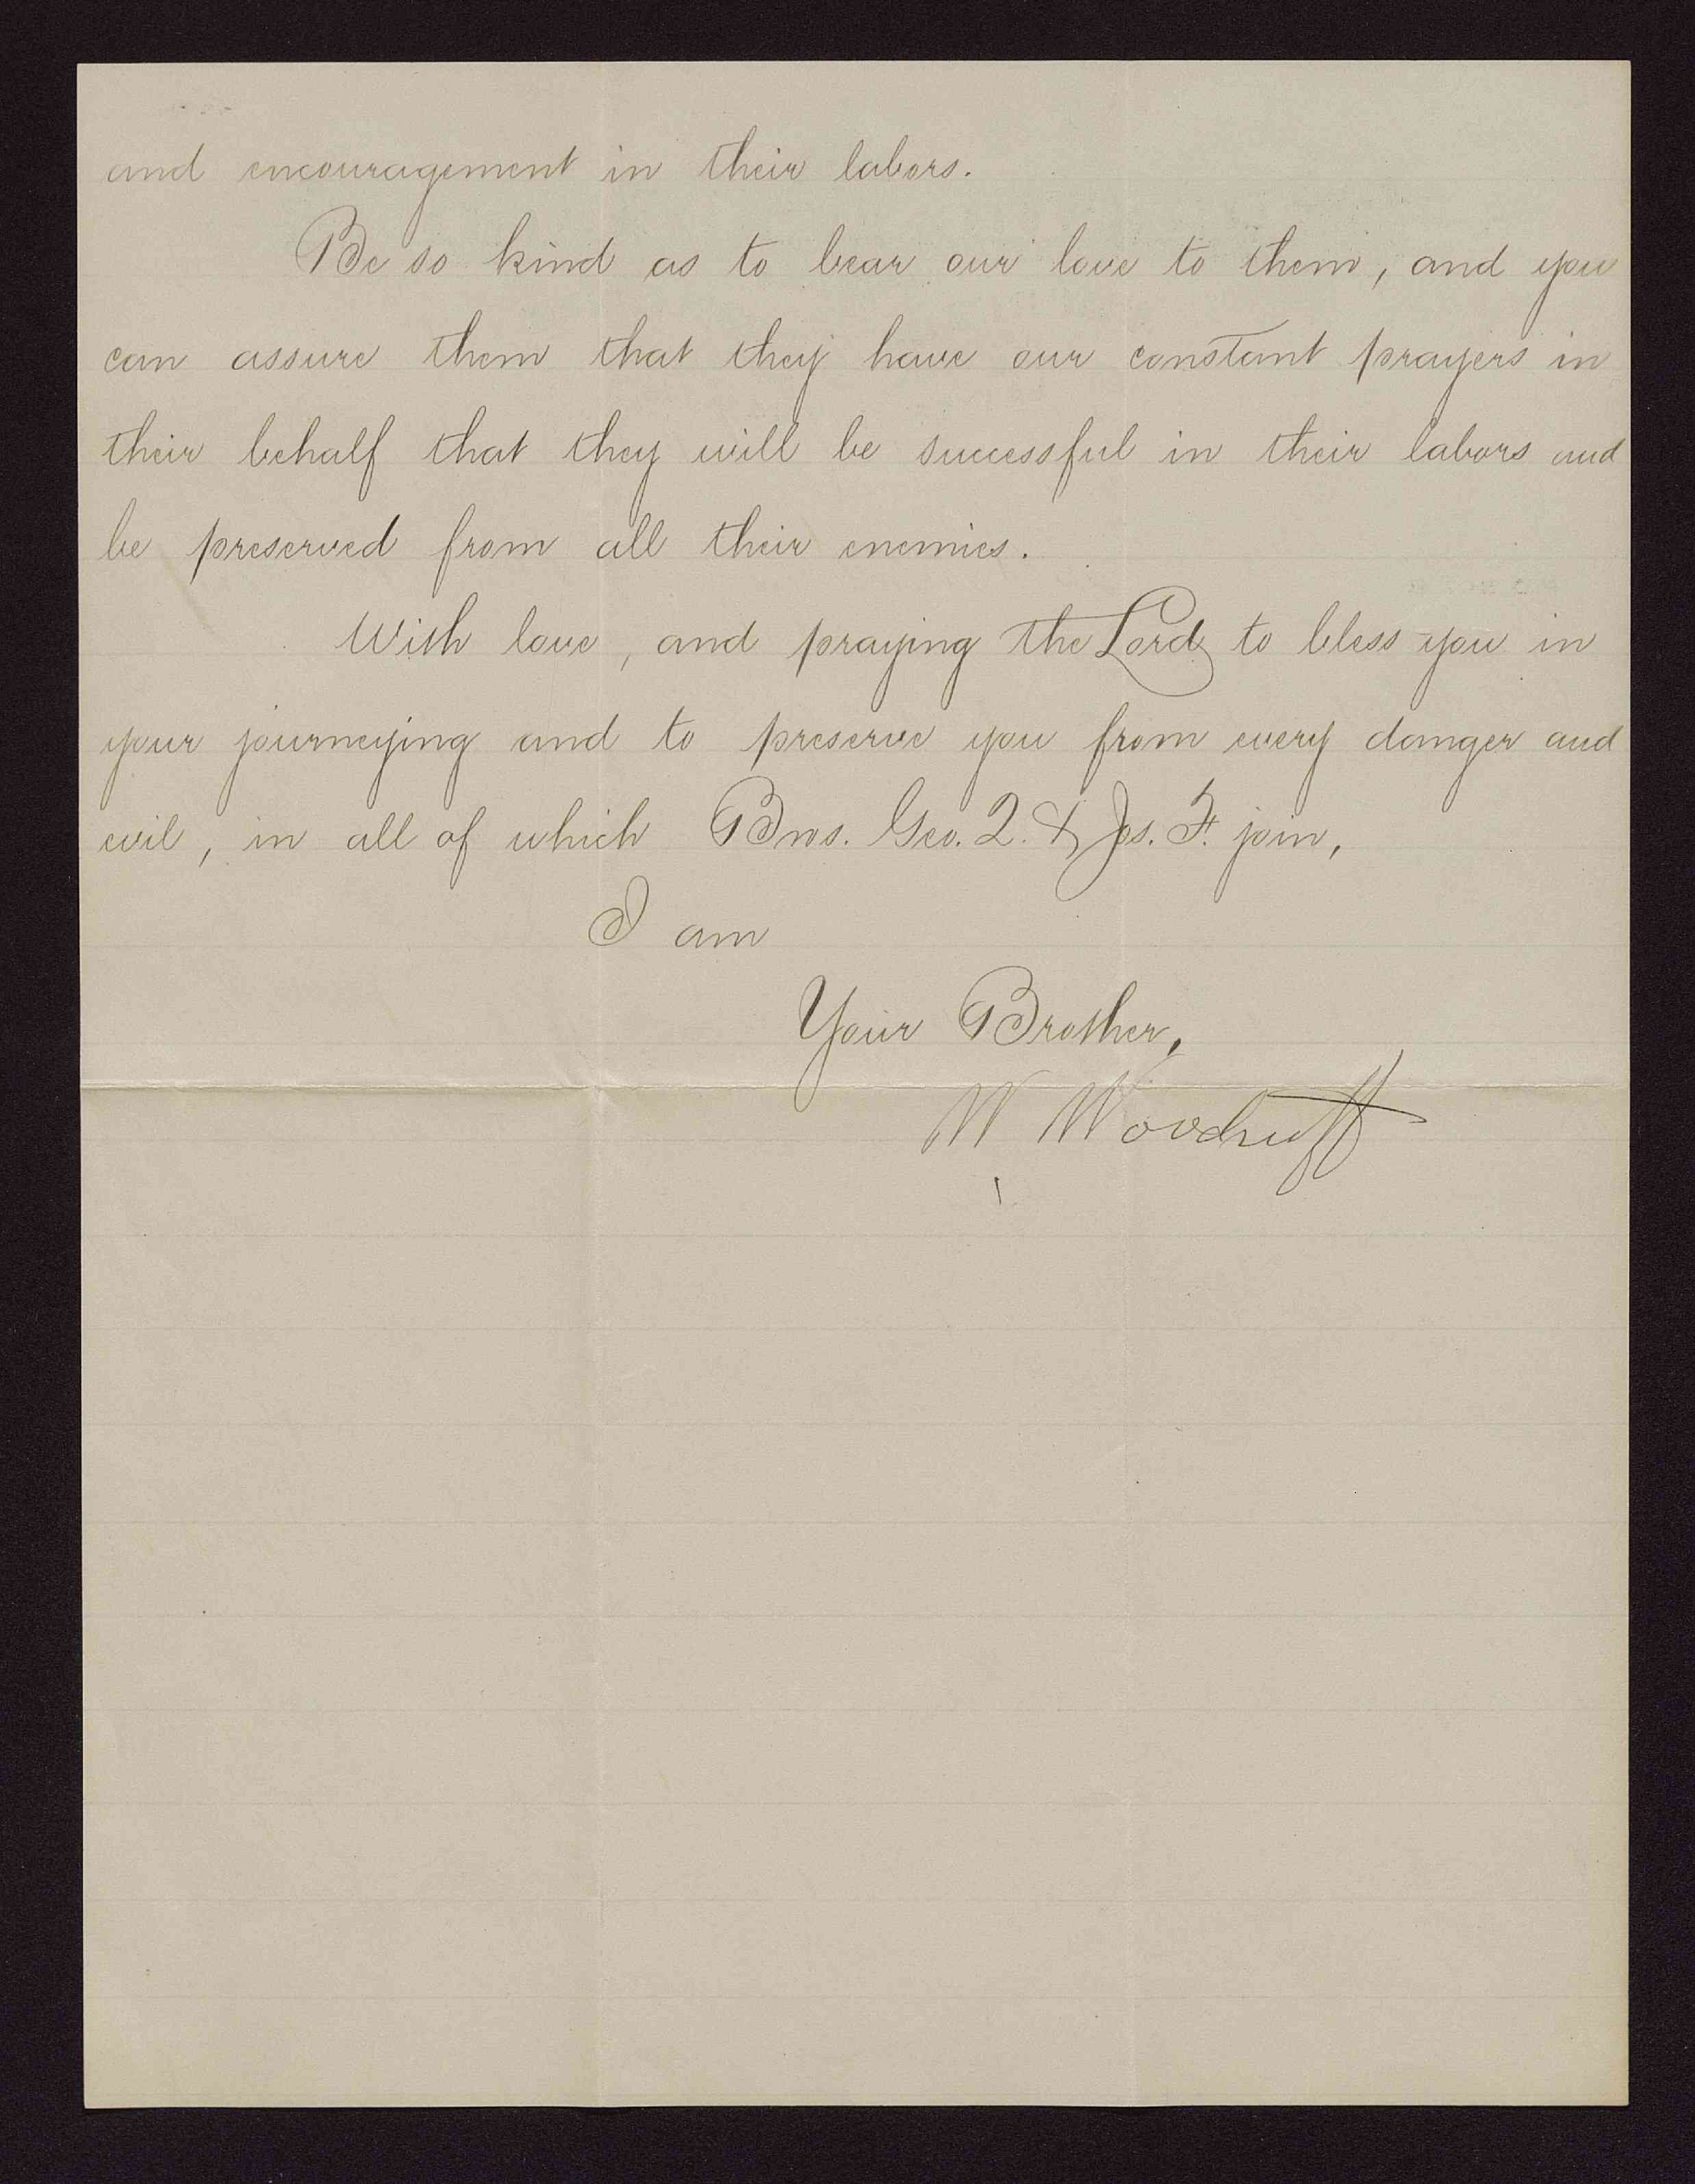 and encouragement in their labors.
Be so kind as to bear our love to them, and you
can assure them that they have our constant prayers in
their behalf that they will be successful in their labors and
be preserved from all their enemies.
With love, and praying the Lord to bless you in
your journeying and to preserve you from every danger and
evil, in all of which Bros. Geo. Q. & Jos. F. join,
I am
Your Brother,
W Woodruff